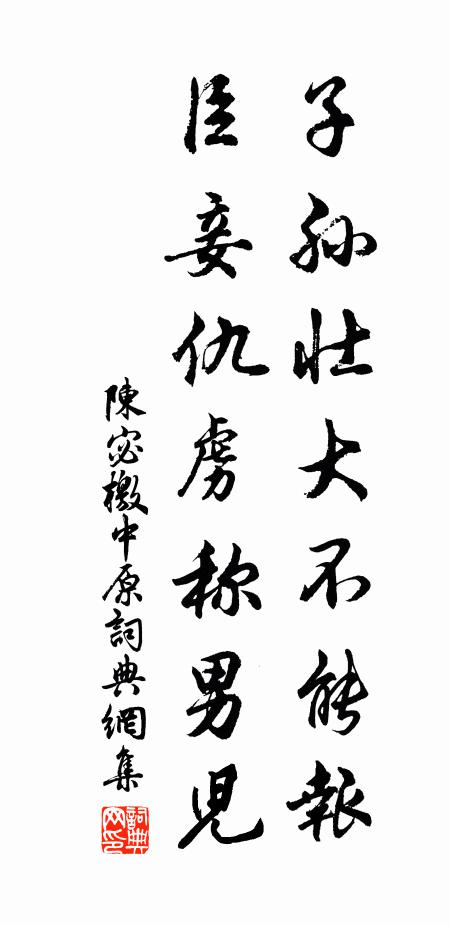 子孙壮大不能報
臣妾仇虜称男児
陳宓檄中原詞典網集
詞典网印